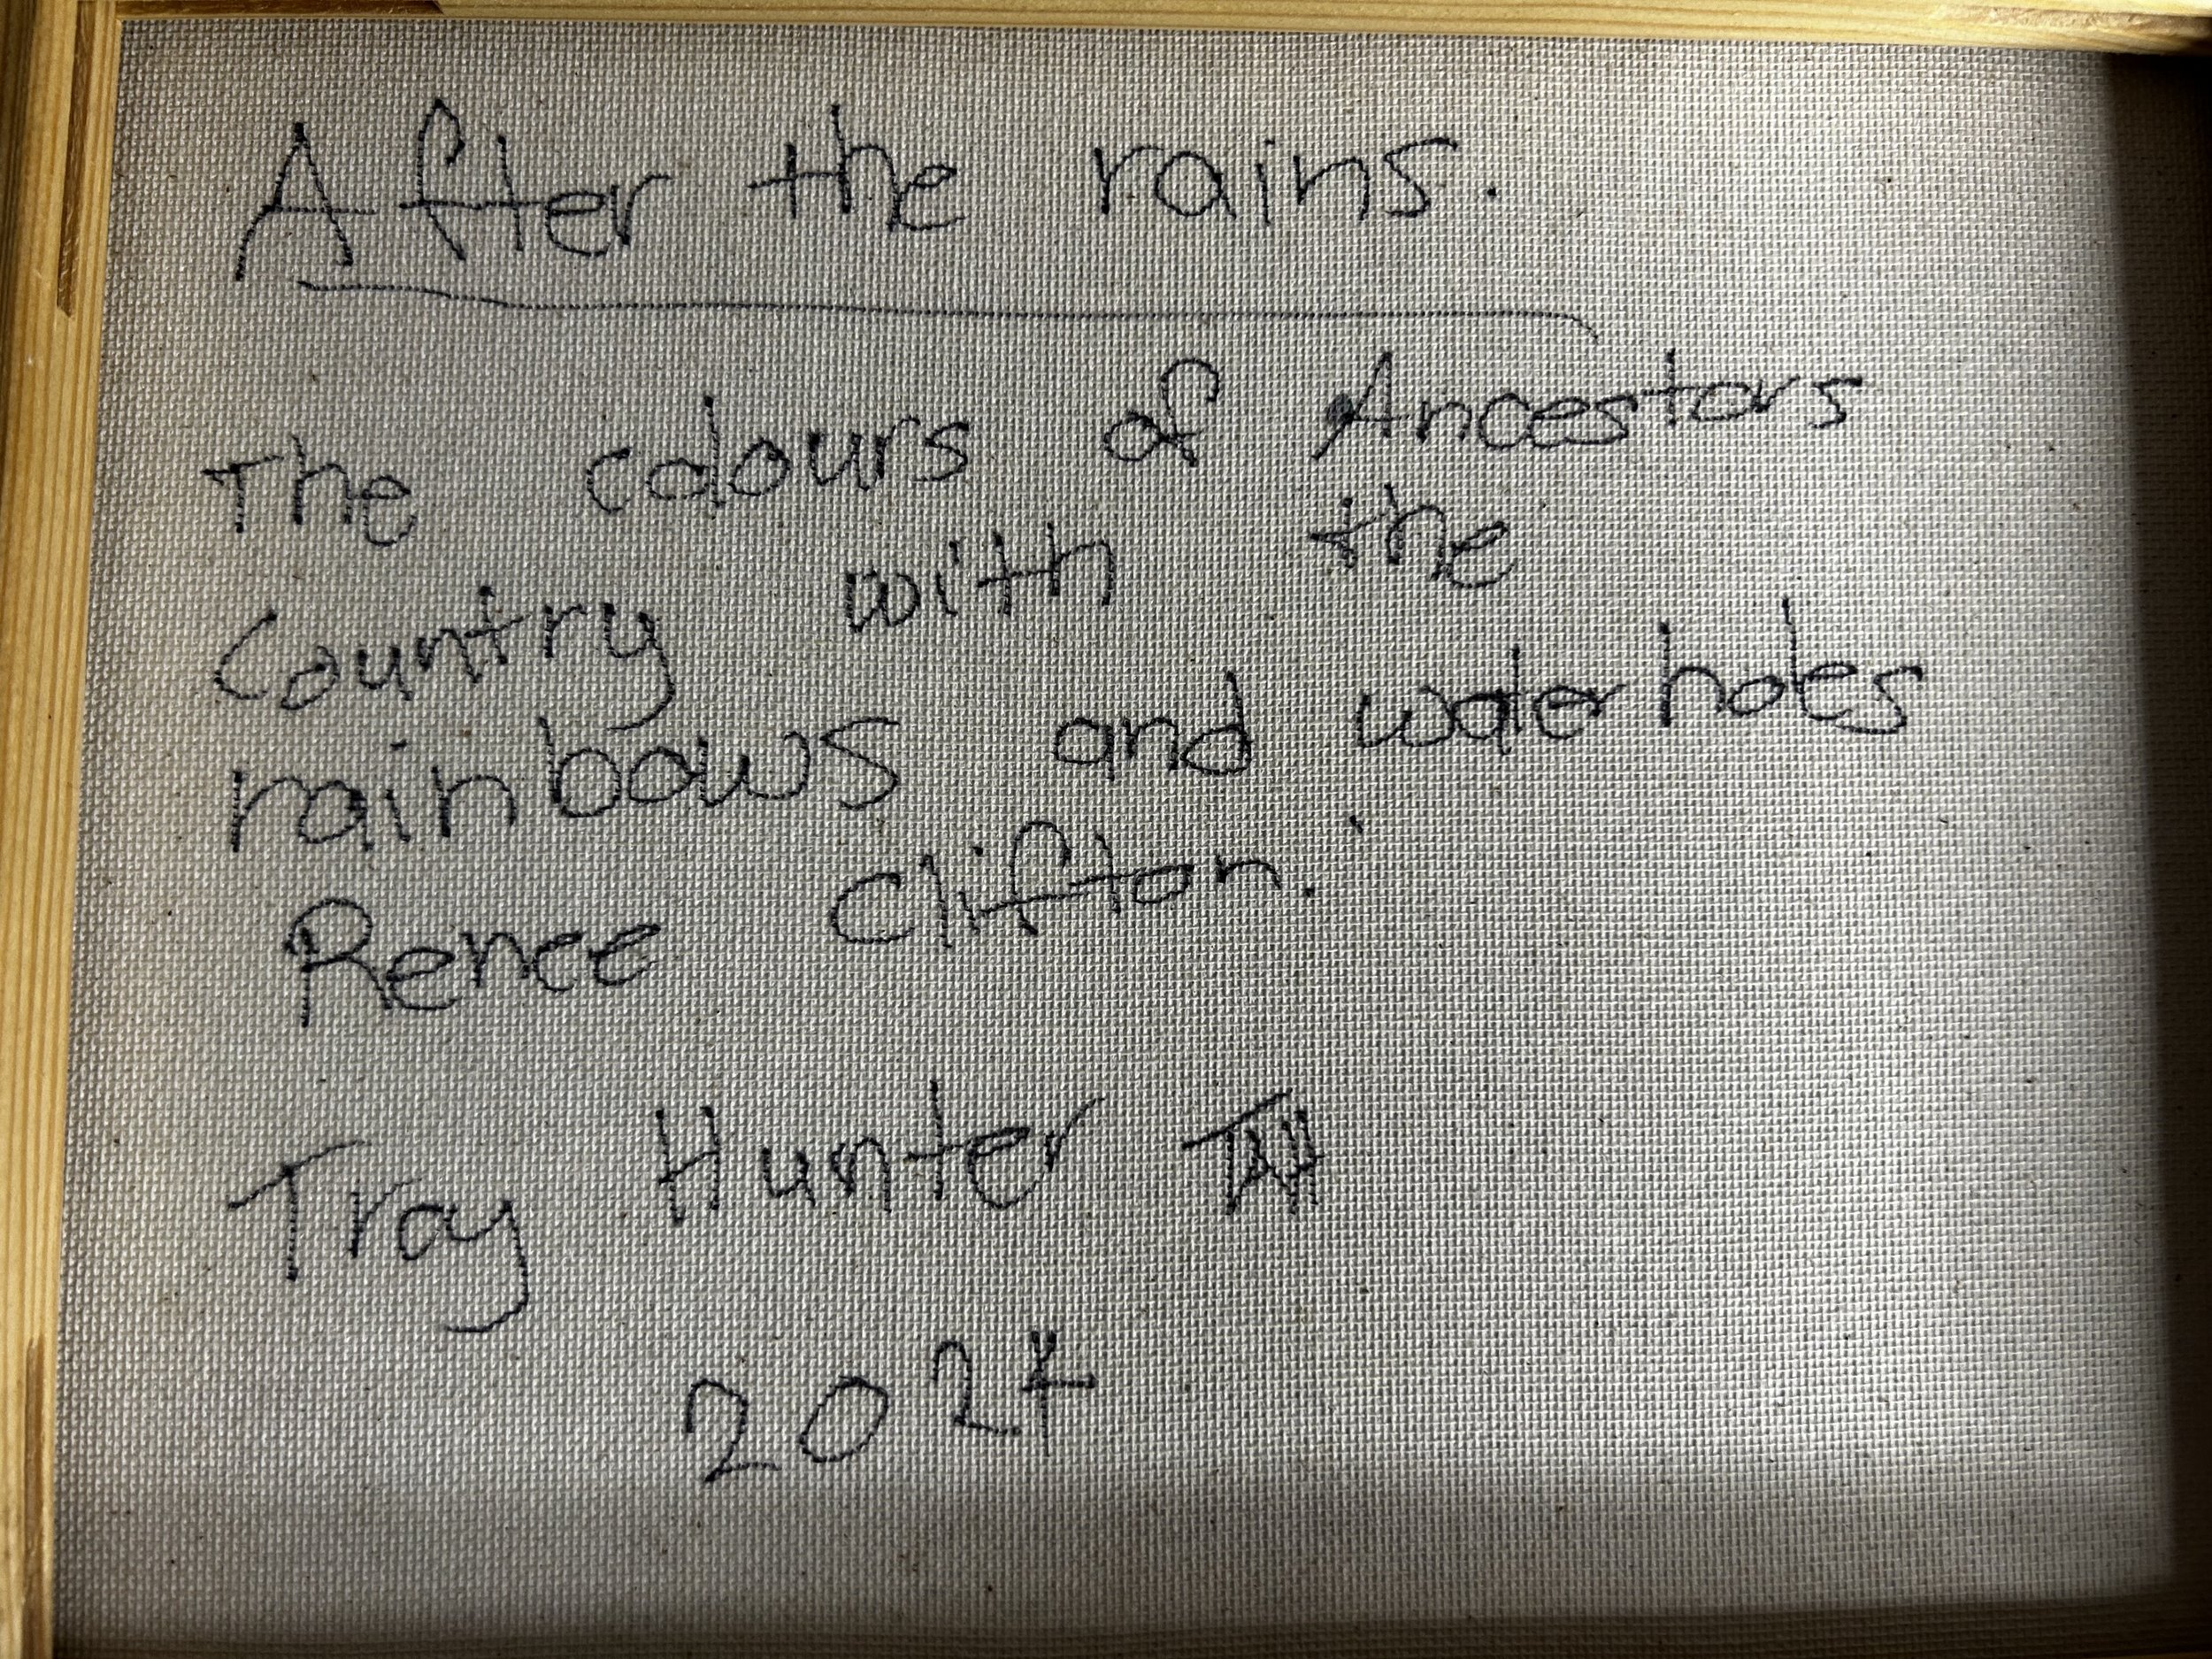 After the rains.
The colours of Ancestors
Country with the
rainbows and waterholes
Renee Clifton.
Troy Hunter TH
2024